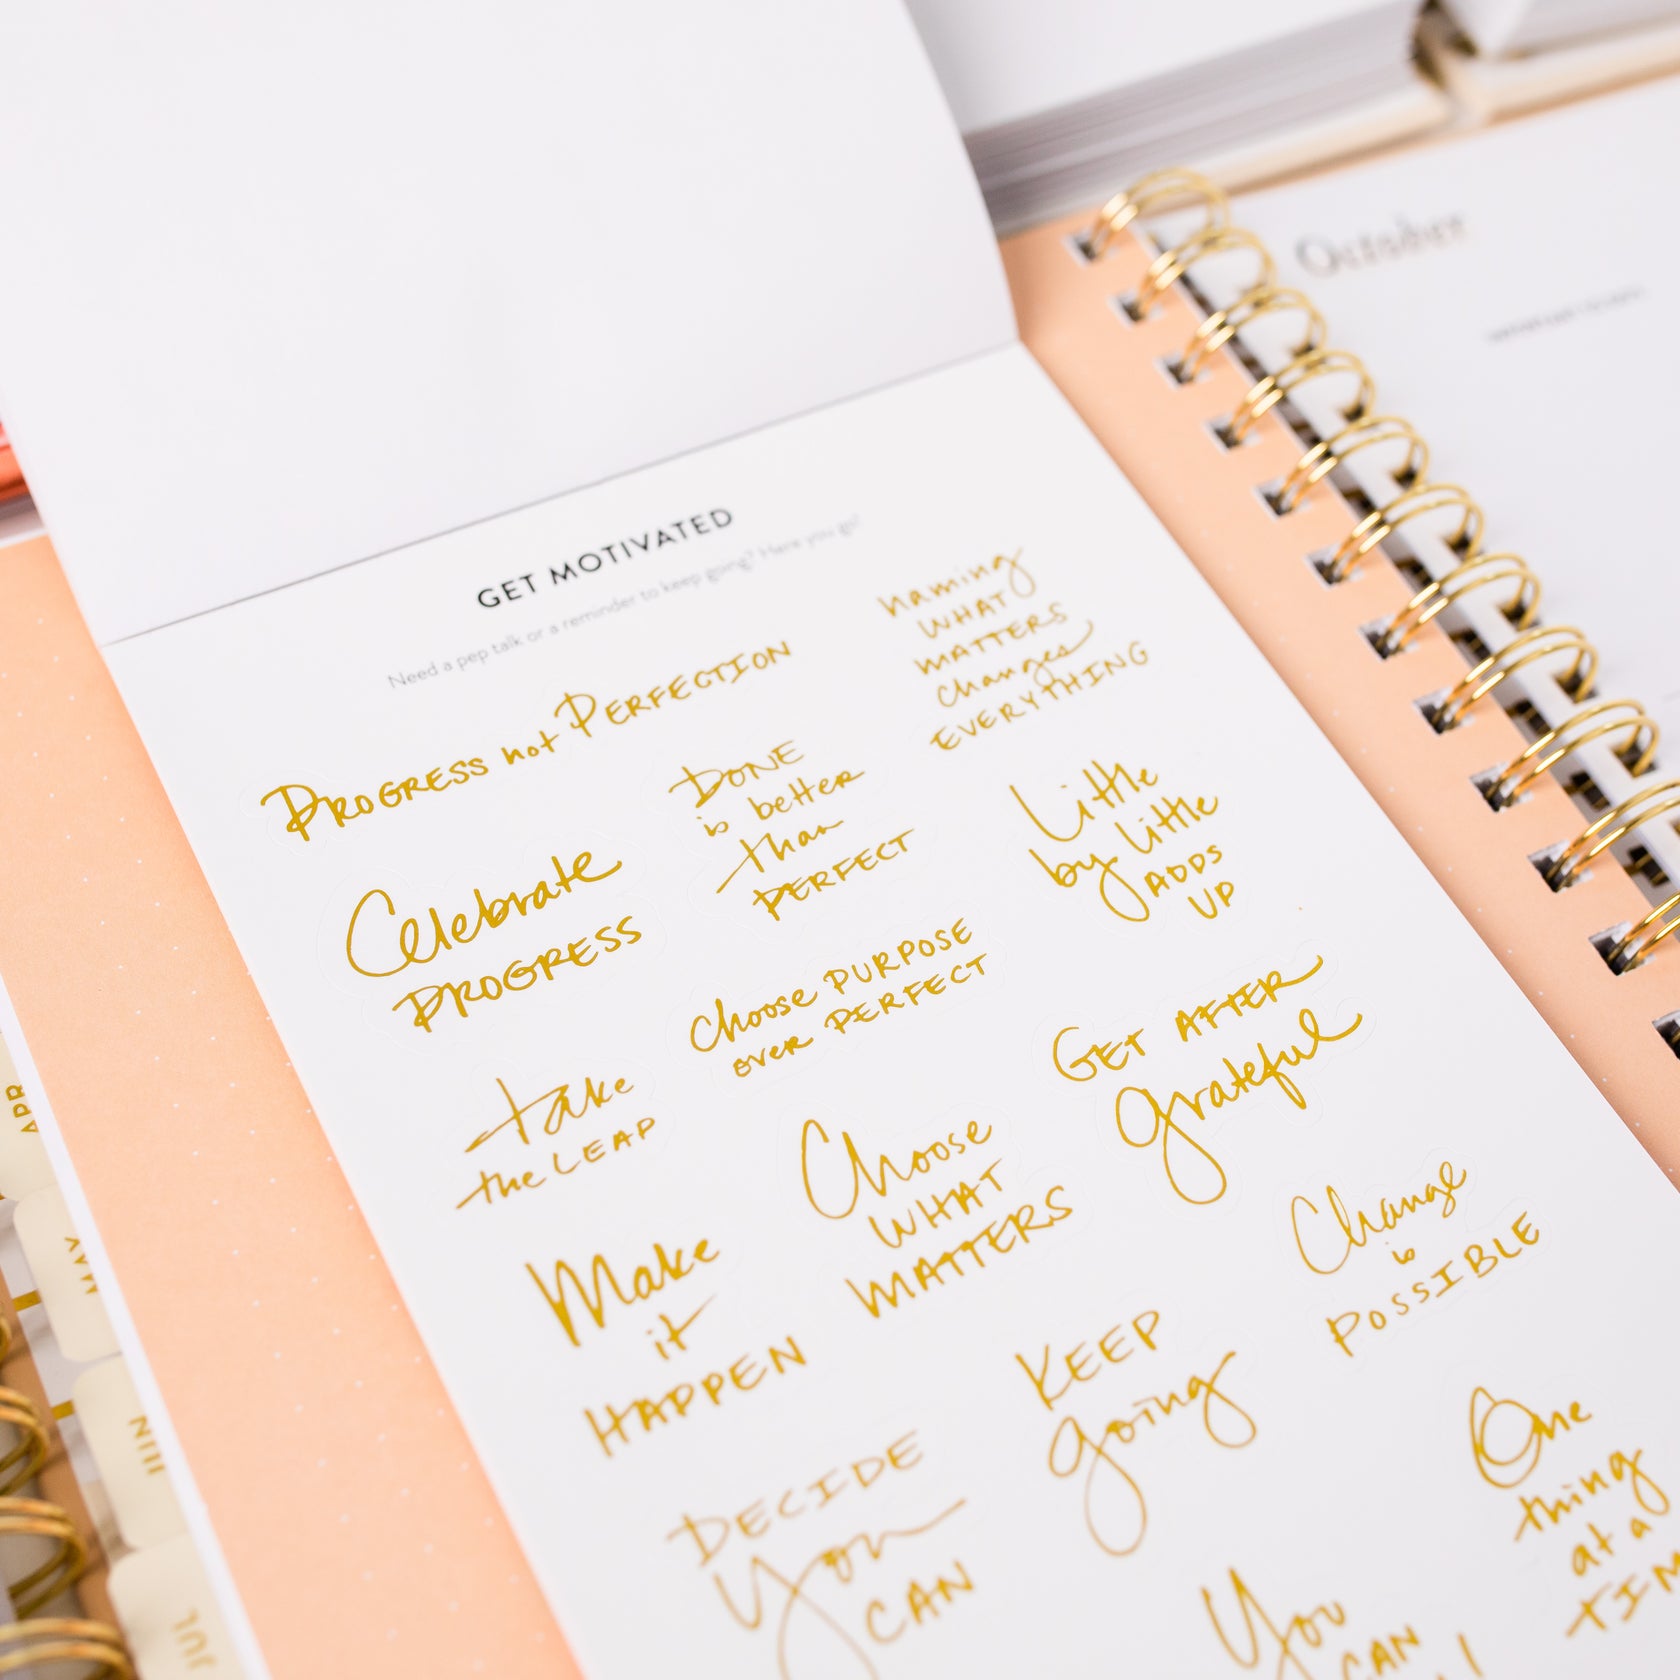 GET MOTIVATED
Need a pep talk or a reminder to keep going? Here you go!
PROGRESS not PERFECTION
naming
WHAT
MATTERS
changes
EVERYTHING
DONE
is better
than
PERFECT
Little
by little
ADDS
UP
Celebrate
PROGRESS
Choose PURPOSE
over PERFECT
GET AFTER
grateful
take
the LEAP
Choose
WHAT
MATTERS
Change
is
POSSIBLE
Make
it
HAPPEN
KEEP
going
One
thing
at a
TIM
DECIDE
You
CAN
You
CAN
October
APR
MAY
JUN
JUL